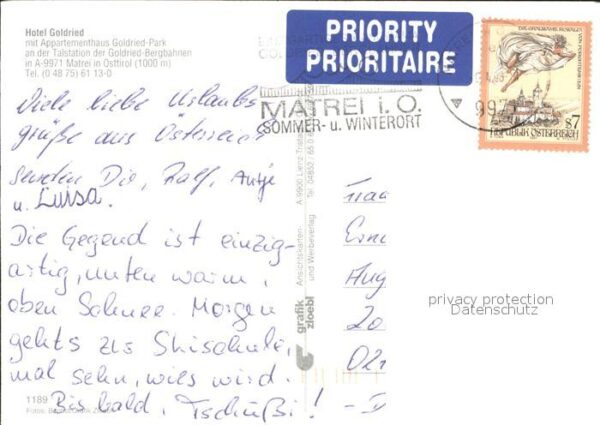 Hotel Goldried
mit Appartementhaus Goldried-Park
an der Talstation der Goldried-Bergbahnen
in A-9971 Matrei in Osttirol (1000 m)
Tel. (0 48 75) 61 13-0
PRIORITY
PRIORITAIRE
MATREI i. O.
SOMMER- u. WINTERORT
997
s7
REPUBLIK ÖSTERREICH
Viele liebe Urlaubs
grüße aus Österreich
senden Dir, Ralf, Antje
u. Luisa.
Die Gegend ist einzig-
artig, unten warm,
oben Schnee. Morgen
gehts zls Skischule,
mal sehn, wies wird.
Bis bald, Tschüßi!
1189
Fotos:
grafik
zloebl
Ansichtskarten-
und Werbeverlag
A-9900 Lienz
Tel. 04852/
Aug
20
021
privacy protection
Datenschutz